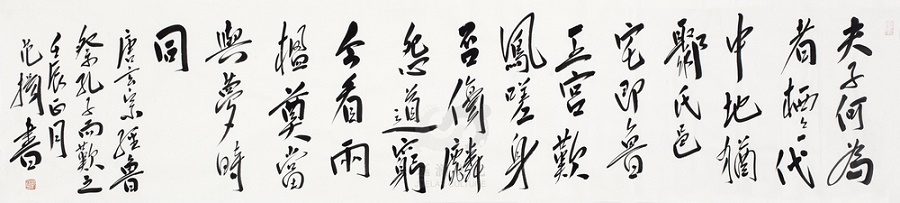 夫子何為
者栖々一代
中地猶
鄹氏邑
宅即魯
王宮歎
鳳嗟身
否傷麟
怨道窮
今看兩
楹奠當
與夢時
同
唐玄宗經魯
祭孔子而歎之
壬辰正月
范揚書